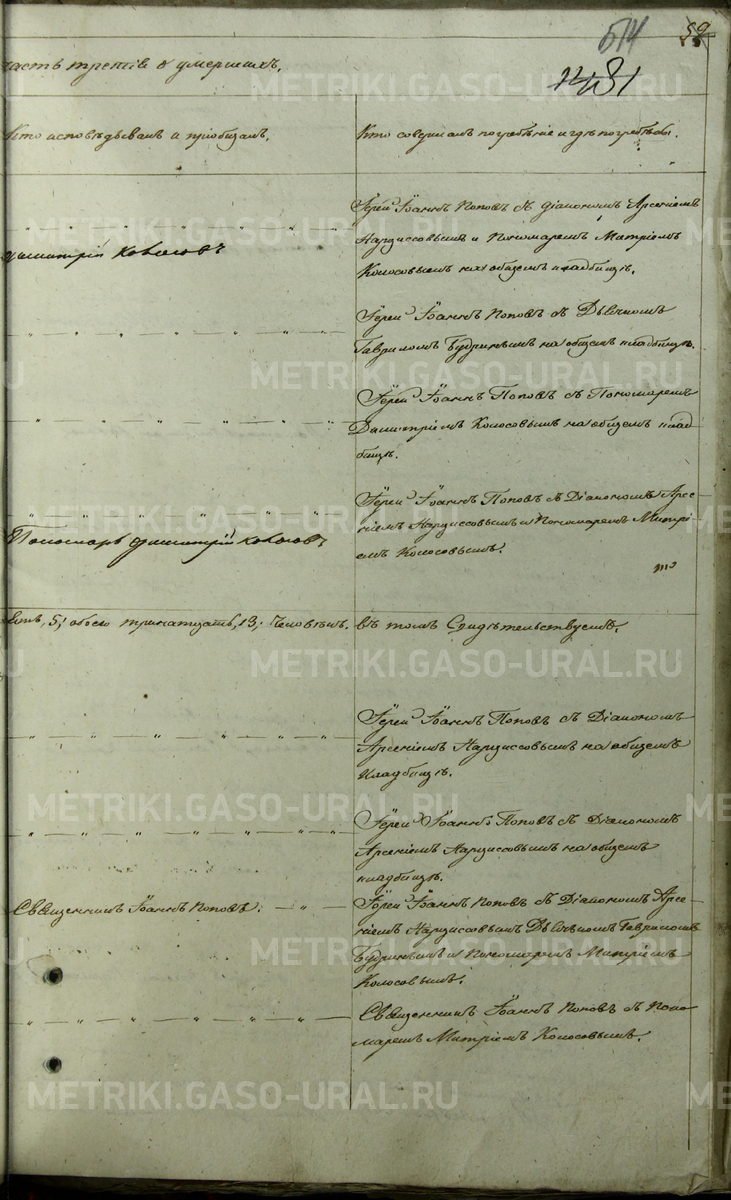 514
59
часть третія о умершихъ.
Кто исповѣдывалъ и пріобщалъ.
Кто совершалъ погребеніе и гдѣ погребены.
Іерей Іоаннъ Поповъ съ діакономъ Арсеніемъ
Нарциссовымъ и Пономаремъ Митріемъ
Колосовымъ на общемъ кладбищѣ.
Димитрій Колосовъ
Іерей Іоаннъ Поповъ съ Дьячкомъ
Гавриломъ Будринымъ на общемъ кладбищѣ.
Іерей Іоаннъ Поповъ съ Пономаремъ
Димитріемъ Колосовымъ на общемъ клад
бищѣ.
Іерей Іоаннъ Поповъ съ Діакономъ Арсе-
ніемъ Нарциссовымъ и Пономаремъ Митрі
емъ Колосовымъ.
Пономарь Димитрій Колосовъ
5; обоего тринатцать, 13; Человѣкъ. въ томъ Свидѣтельствуемъ.
Іерей Іоаннъ Поповъ съ Діакономъ
Арсеніемъ Нарциссовымъ на общемъ
Кладбищѣ.
Іерей Іоаннъ Поповъ съ Діакономъ
Арсеніемъ Нарциссовымъ на общемъ
кладбищѣ.
Священникъ Іоаннъ Поповъ.
Іерей Іоаннъ Поповъ съ Діакономъ Арсе-
ніемъ Нарциссовымъ Дьячкомъ Гавриломъ
Будринымъ и Пономаремъ Митріемъ
Колосовымъ.
Священникъ Іоаннъ Поповъ съ Поно
маремъ Митріемъ Колосовымъ.
METRIKI.GASO-URAL.RU